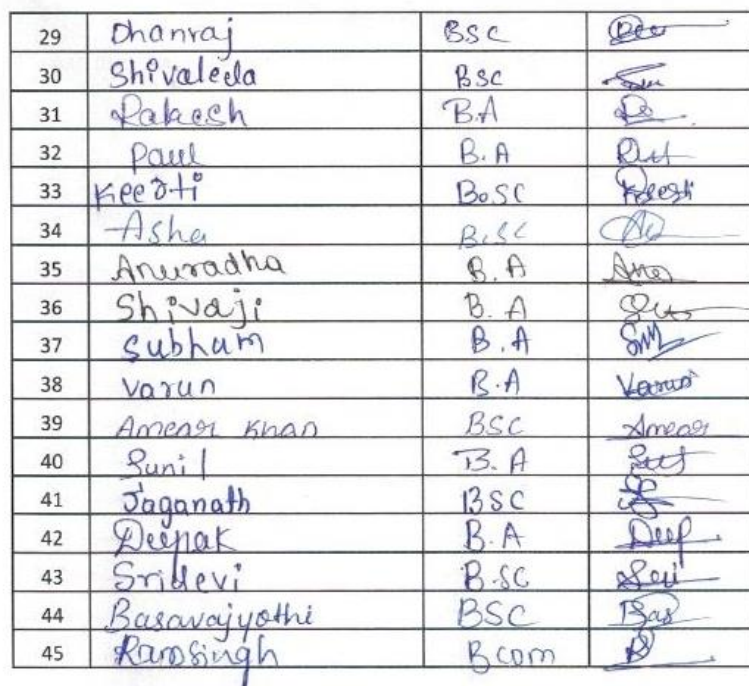 29 Dhanraj BSC
30 Shivaleela BSC
31 Rakesh B.A
32 Paul B.A Paul
33 Keerti B.SC Keerti
34 Asha B.SC
35 Anuradha B.A Anu
36 Shivaji B.A
37 Subham B.A
38 Varun B.A Varun
39 Amear Khan BSC Amear
40 Sunil B.A
41 Jaganath BSC
42 Deepak B.A Deep
43 Sridevi B.SC
44 Basavajyothi BSC Bas
45 Ramsingh Bcom